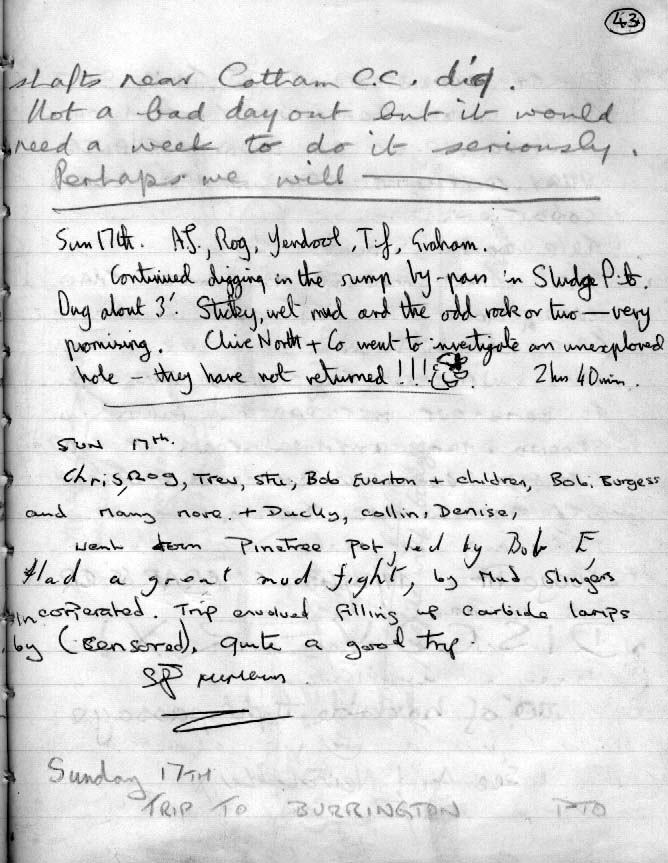 43
shafts near Cotham C.C. dig.
Not a bad day out but it would
need a week to do it seriously.
Perhaps we will
Sun 17th. AJ., Rog, Yendool, T.f, Graham.
Continued digging in the sump by-pass in Sludge Pit.
Dug about 3'. Sticky, wet mud and the odd rock or two — very
promising. Clive North + Co went to investigate an unexplored
hole – they have not returned !!! 2 hrs 40 min.
SUN 17th.
Chris, Rog, Trev, Stu, Bob Everton + children, Bob. Burgess
and Many more. + Ducky, collin, Denise,
went down Pinetree Pot, led by Bob E,
Had a great mud fight, by Mud Slingers
incorperated. Trip envolved filling up carbide lamps
by (censored), Quite a good trip.
Sunday 17TH
TRIP TO BURRINGTON PTO